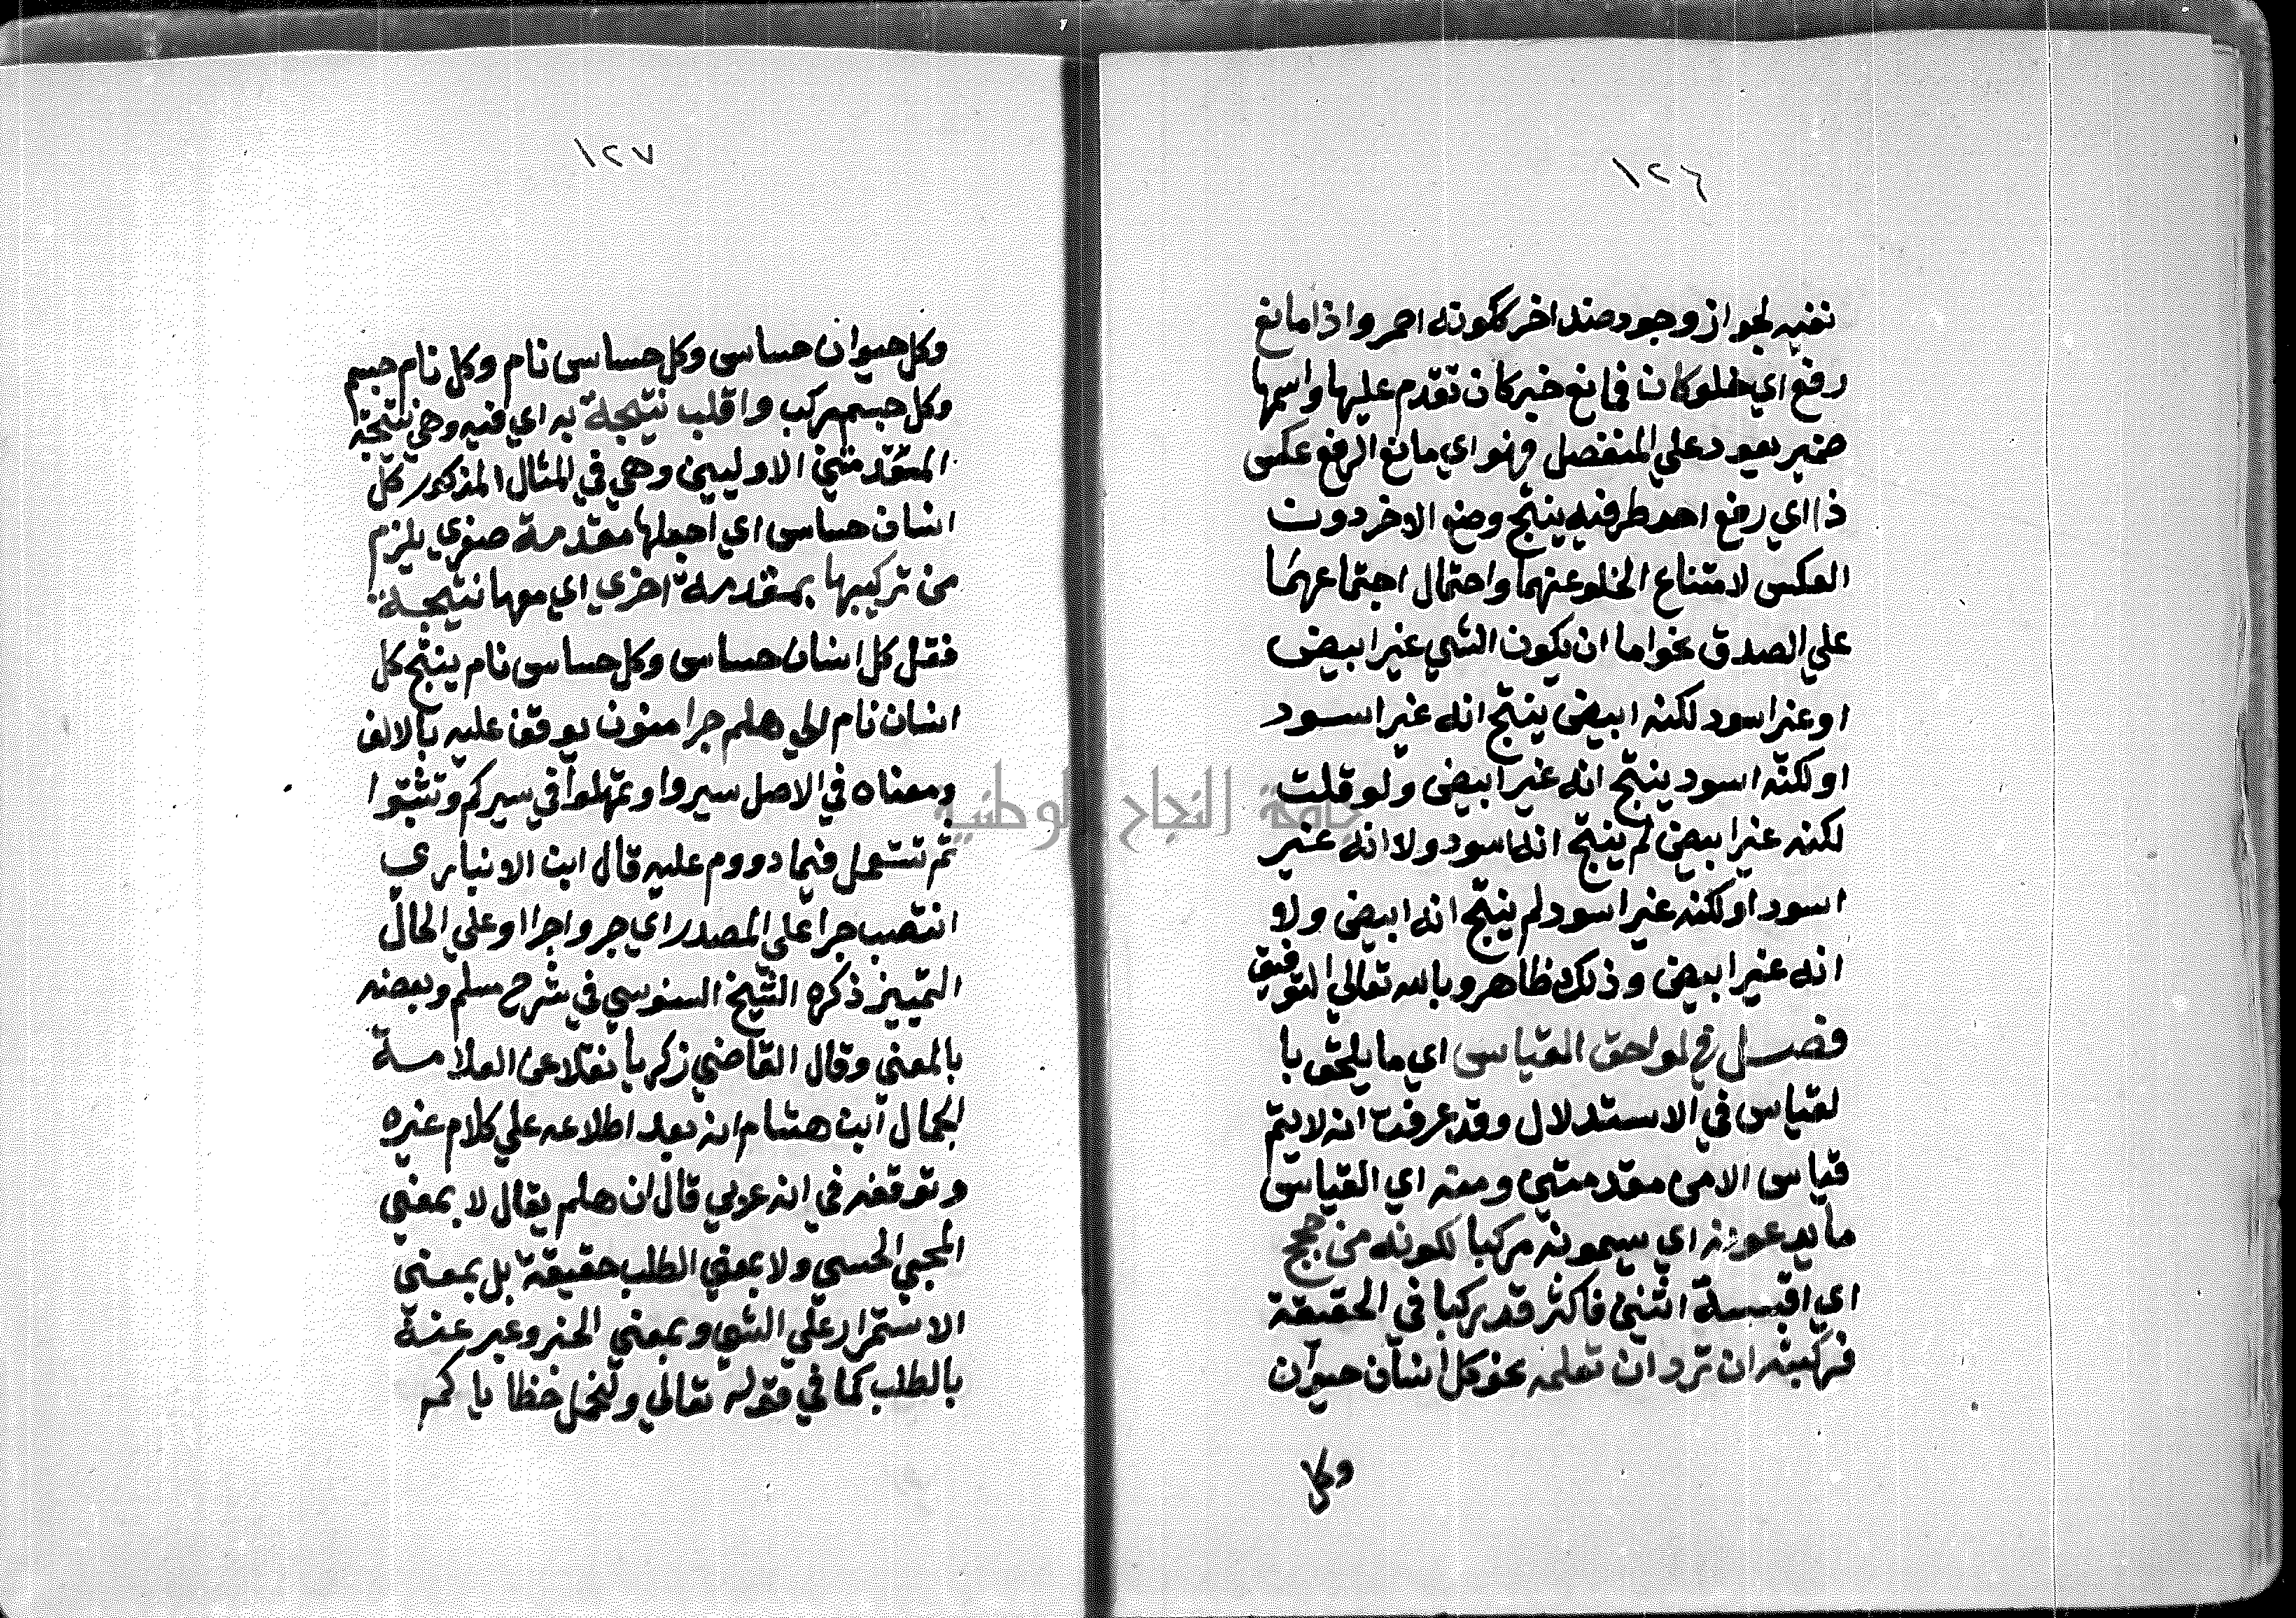 ١٢٦
نفيه لجواز وجود ضد اخر ككونه احمر واذا مانع
رفع اي خلو كان فمانع خبر كان تقدم عليها واسمها
ضمير يعود علي المنفصل فهو اي مانع الرفع عكس
ذا اي رفع احد طرفيه ينتج وضع الاخر دون
العكس لامتناع الخلو عنهما واحتمال اجتماعهما
علي الصدق نحو اما ان يكون الشي غير ابيض
او غير اسود لكنه ابيض ينتج انه غير اسود
او لكنه اسود ينتج انه غير ابيض ولو قلت
لكنه غير ابيض لم ينتج انه اسود ولا انه غير
اسود او لكنه غير اسود لم ينتج انه ابيض ولا
انه غير ابيض وذلك ظاهر وبالله تعالي التوفيق
فصل في لواحق القياس اي ما يلحق با
لقياس في الاستدلال وقد عرفت انه لا يتم
قياس الا من مقدمتين ومنه اي القياس
ما يدعونه اي يسمونه مركبا لكونه من حجج
اي اقيسة اثنين فاكثر قد ركبا في الحقيقة
فركبنه ان ترد ان تعلمه نحو كل انسان حيوان
وكل
١٢٧
وكل حيوان حساس وكل حساس نام وكل نام جسم
وكل جسم مركب واقلب نتيجة به اي فيه وهي نتيجة
المقدمتين الاوليين وهي في المثال المذكور كل
انسان حساس اي اجعلها مقدمة صغري يلزم
من تركيبها بمقدمة اخري اي معها نتيجة
فقل كل انسان حساس وكل حساس نام ينتج كل
انسان نام الي هلم جرا منون يوقف عليه بالالف
ومعناه في الاصل سيروا وتمهلوا في سيركم وتثبتوا
ثم تستعمل فيما دووم عليه قال ابن الانباري
انتصب جرا علي المصدر اي جروا جرا او علي الحال
التمييز ذكره الشيخ السنوسي في شرح مسلم وبعضه
بالمعني وقال القاضي زكريا نقلا عن العلامة
الجمال ابن هشام انه بعد اطلاعه علي كلام غيره
وتوقفه في انه عربي قال ان هلم يقال لا بمعني
المجي الحسي ولا بمعني الطلب حقيقة بل بمعني
الاستمرار علي الشي وبمعني الخبر وعبر عنه
بالطلب كما في قوله تعالي ولنحمل خطاياكم
جامعة النجاح الوطنية